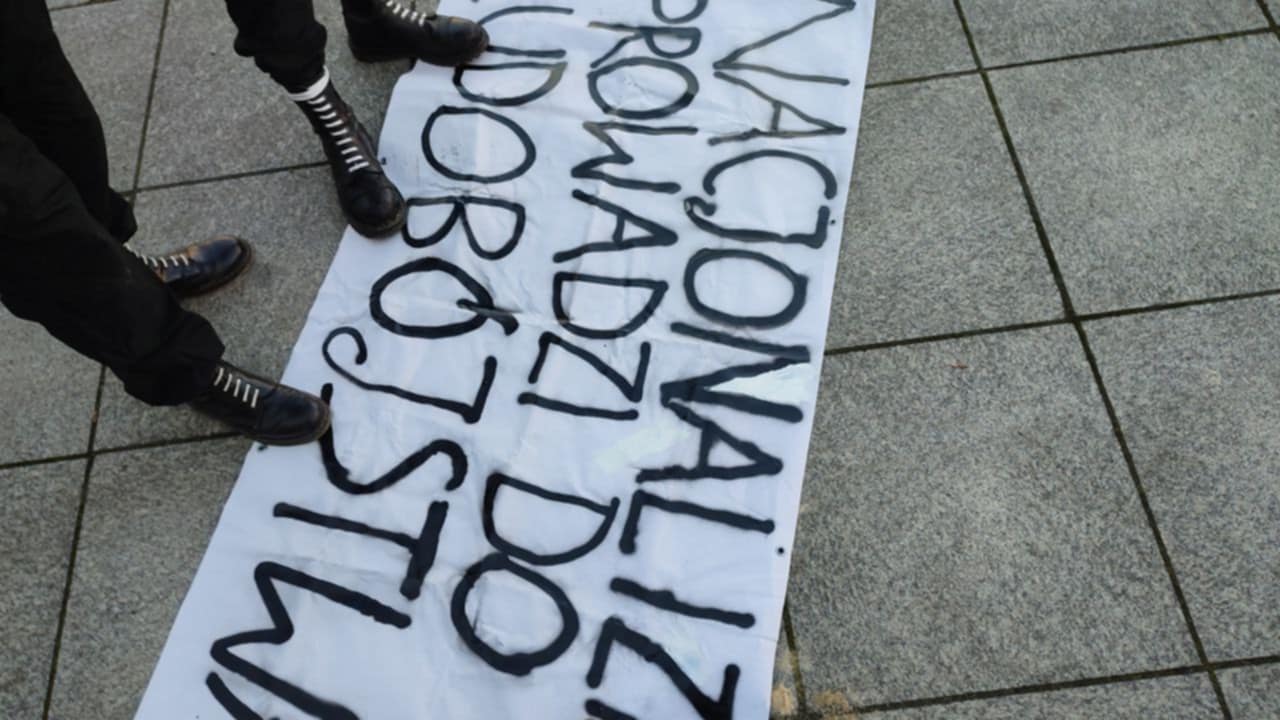 NACJONALIZ
PROWADZI DO
UDOBÓJSTW